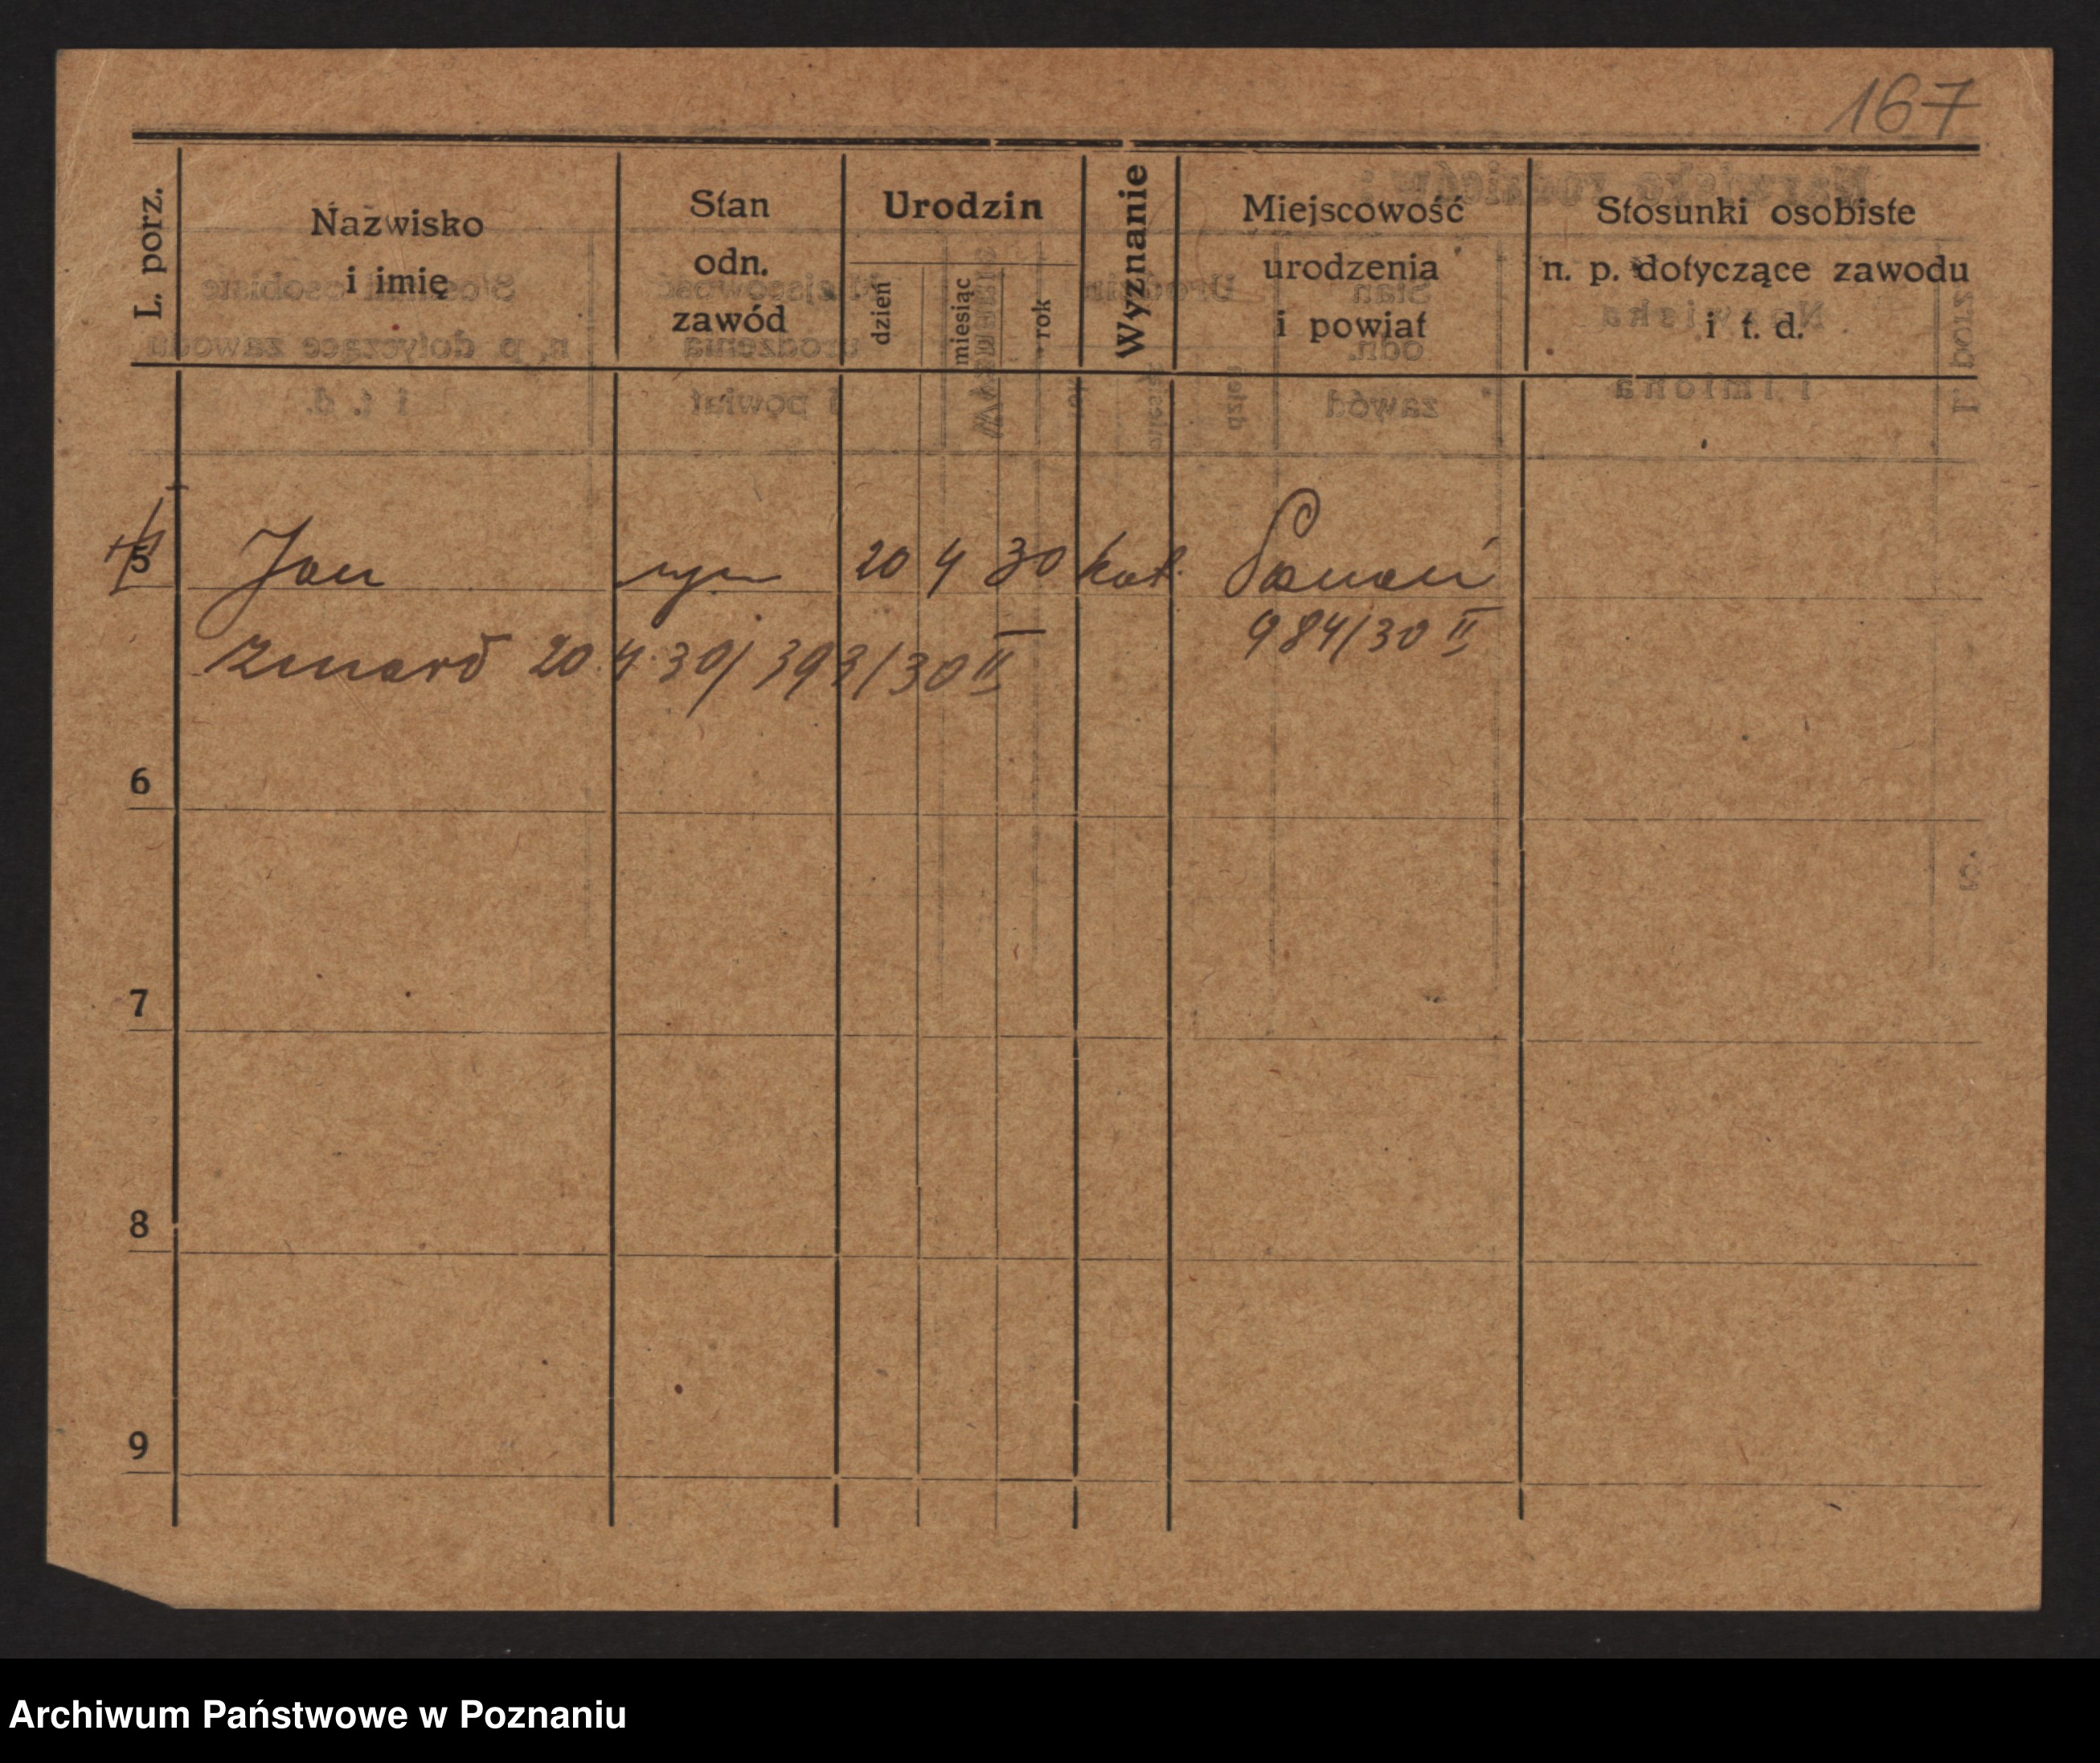 167
L. porz.
Nazwisko
i imię
Stan
odn.
zawód
Urodzin
dzień
miesiąc
rok
Wyznanie
Miejscowość
urodzenia
i powiat
Stosunki osobiste
n. p. dotyczące zawodu
i t. d.
5 Jan syn 20 4 30 kat. Poznań
984/30 II
zmarł 20.4.30/ 393/30 II
6
7
8
9
Archiwum Państwowe w Poznaniu